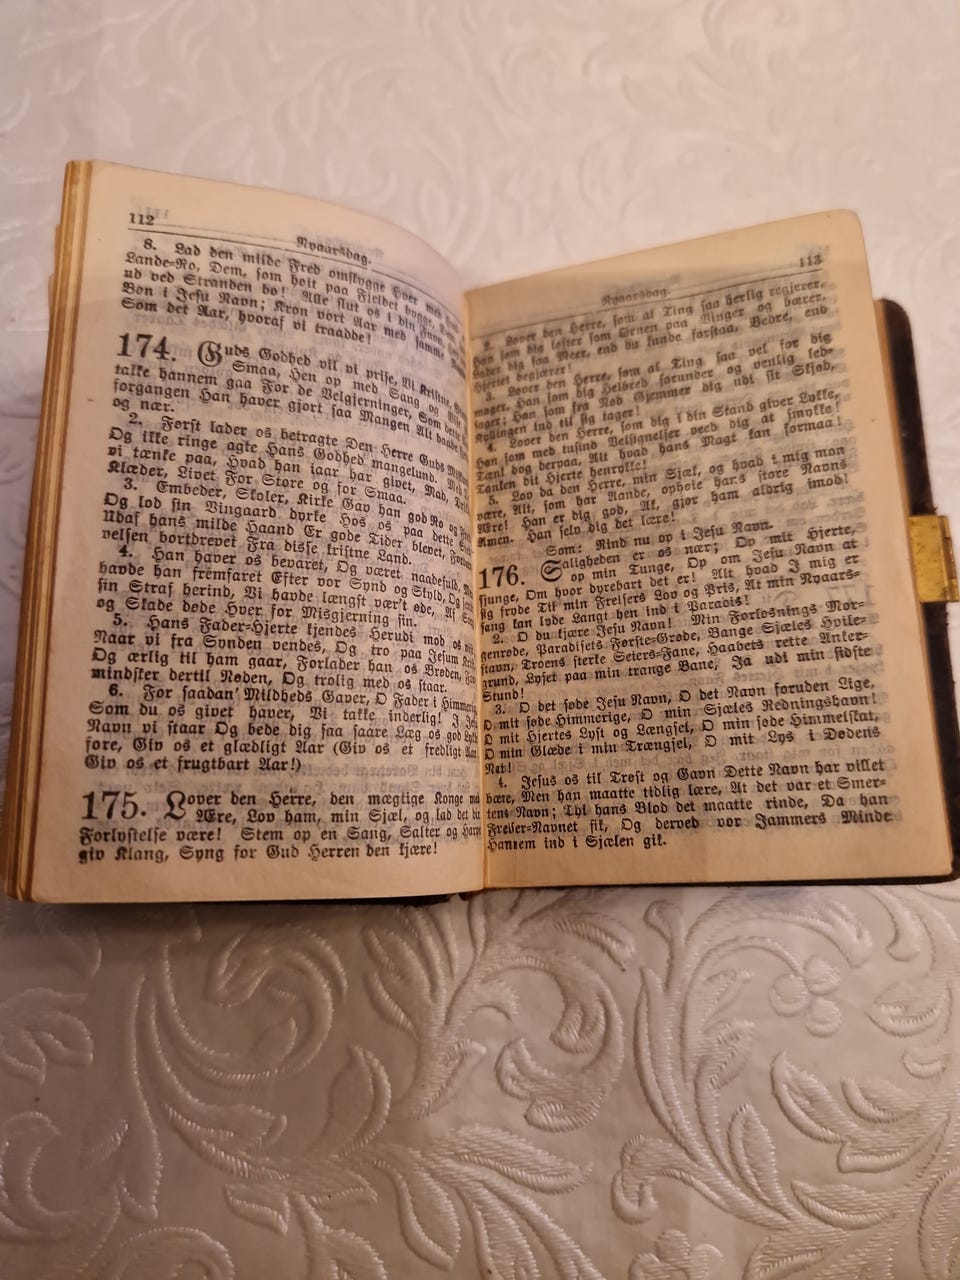 112
Nyaarsdag.
8. Lad den milde Fred omskygge Hver
Lande-Ro, Dem, som høit paa Fjeldet bygge,
ud ved Stranden bo! Alle slut os i din Favn,
Bøn i Jesu Navn; Kron vort Aar med samme
Som det Aar, hvoraf vi traadde!
174. Guds Godhed vil vi prise, Vi Kristne,
Smaa, Hen op med Sang og
takke hannem gaa For de Velgjerninger, Som dette
forgangen Han haver gjort saa Mangen Alt baade
og nær.
2. Først lader os betragte Den Herre Guds
Og ikke ringe agte Hans Godhed mangelund.
vi tænke paa, Hvad han iaar har givet, Mad,
Klæder, Livet For Store og for Smaa.
3. Embeder, Skoler, Kirke Gav han god Ro og
Og lod sin Vingaard dyrke Hos os paa dette
Udaf hans milde Haand Er gode Tider blevet,
velsen bortdrevet Fra disse kristne Land.
4. Han haver os bevaret, Og været naadefuld,
havde han fremfaret Efter vor Synd og Skyld, Og
sin Straf herind, Vi havde længst vær't øde, Af
og Skade døde Hver for Misgjerning sin.
5. Hans Fader-Hjerte kjendes Herudi mod os
Naar vi fra Synden vendes, Og tro paa Jesum
Og ærlig til ham gaar, Forlader han os Brøden,
mindsker dertil Nøden, Og trolig med os staar.
6. For saadan' Mildheds Gaver, O Fader i
Som du os givet haver, Vi takke inderlig! I
Navn vi staar Og bede dig saa saare Læg os god
fore, Giv os et glædligt Aar (Giv os et fredligt
Giv os et frugtbart Aar!)
175. Lover den Herre, den mægtige Konge
Ære, Lov ham, min Sjæl, og lad det
Forlystelse være! Stem op en Sang, Salter og
giv Klang, Syng for Gud Herren den kjære!
113
Nyaarsdag.
2. Lover den Herre, som al Ting saa herlig regjerer,
Han som dig løfter som Ørnen paa Vinger og bærer,
Lader dig faa Meer, end du kunde forstaa, Bedre, end
Hjertet begjærer!
3. Lover den Herre, som al Ting saa vel for dig
mager, Han som dig Helbred forunder og venlig led-
sager; Han som fra Nød Gjemmer dig udi sit Skjød,
Kyllingen ind til sig tager!
4. Lover den Herre, som dig i din Stand giver Lykke,
Han som med tusind Velsignelser veed dig at smykke!
Tænk dog derpaa, Alt hvad hans Magt kan formaa!
Tanken dit Hjerte henrykke!
5. Lov da den Herre, min Sjæl, og hvad i mig mon
være, Alt, som har Aande, ophøie hans store Navns
Ære! Han er dig god, Ak, gjør ham aldrig imod!
Amen. Han selv dig det lære!
Som: Rind nu op i Jesu Navn.
176. Saligheden er os nær; Op mit Hjerte,
op min Tunge, Op om Jesu Navn at
sjunge, Om hvor dyrebart det er! Alt hvad I mig er
sig fryde Til min Frelsers Lov og Pris, At min Nyaars-
sang kan lyde Langt hen ind i Paradis!
2. O du kjære Jesu Navn! Min Forløsnings Mor-
genrøde, Paradisets Første-Grøde, Bange Sjæles Hvile-
stavn, Troens sterke Seiers-Fane, Haabets rette Anker-
grund, Lyset paa min trange Bane, Ja udi min sidste
Stund!
3. O det søde Jesu Navn, O det Navn foruden Lige,
O mit søde Himmerige, O min Sjæles Redningshavn!
O mit Hjertes Lyst og Længsel, O min søde Himmelskat,
O min Glæde i min Trængsel, O mit Lys i Dødens
Nat!
4. Jesus os til Trøst og Gavn Dette Navn har villet
bære, Men han maatte tidlig lære, At det var et Smer-
tens Navn; Thi hans Blod det maatte rinde, Da han
Frelser-Navnet fik, Og derved vor Jammers Minde
Hannem ind i Sjælen gik.